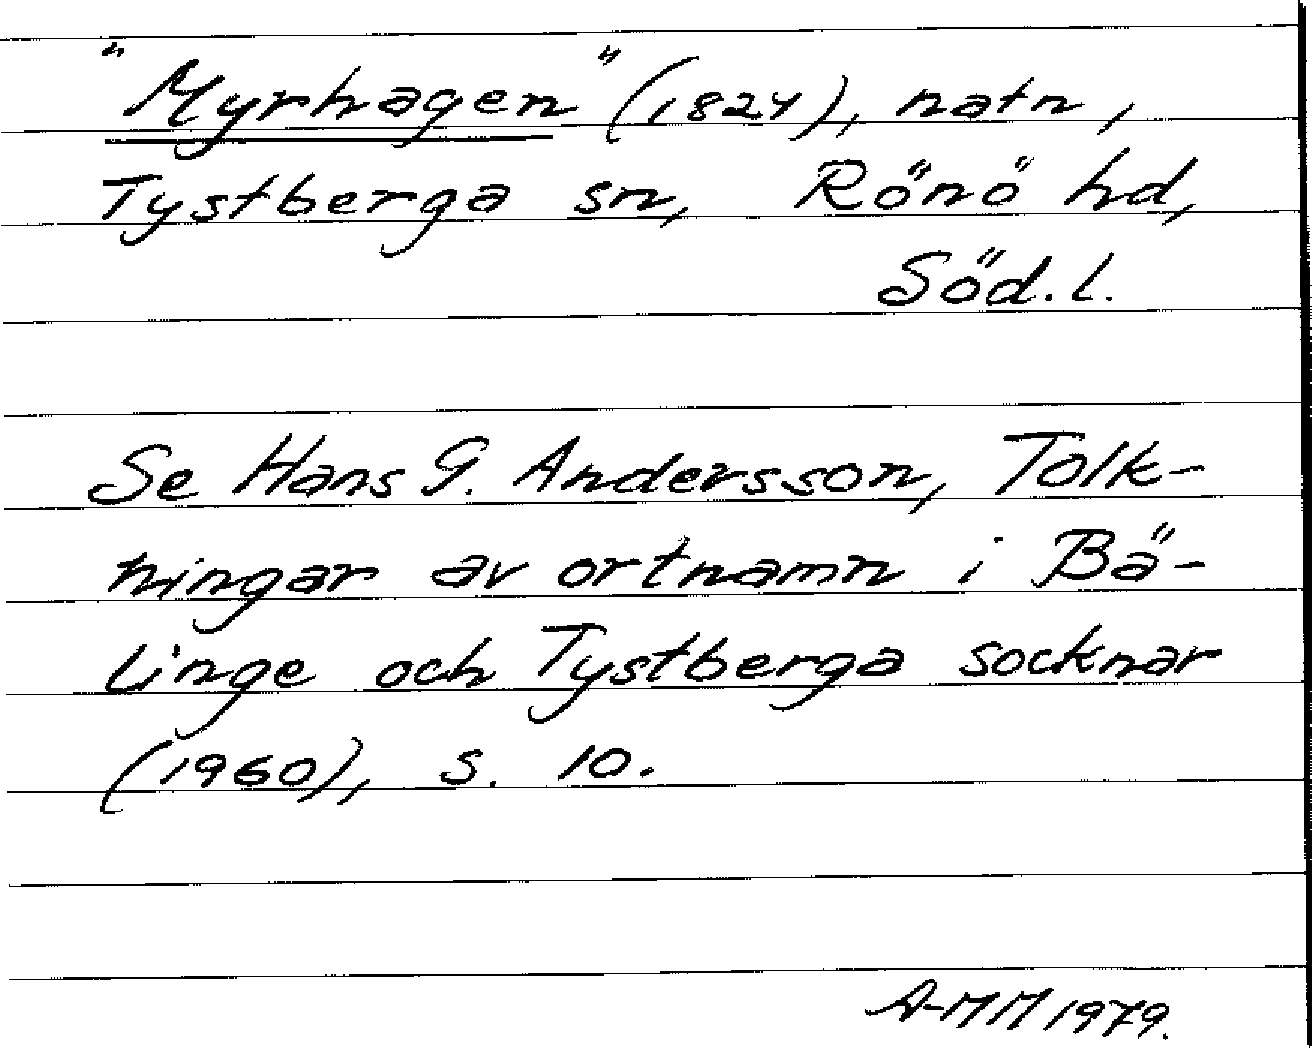 "Myrhagen" (1824), natn,
Tystberga sn, Rönö hd,
Söd. l.
Se Hans G. Andersson, Tolk-
ningar av ortnamn i Bä-
linge och Tystberga socknar
(1960), s. 10.
A-MM 1979.